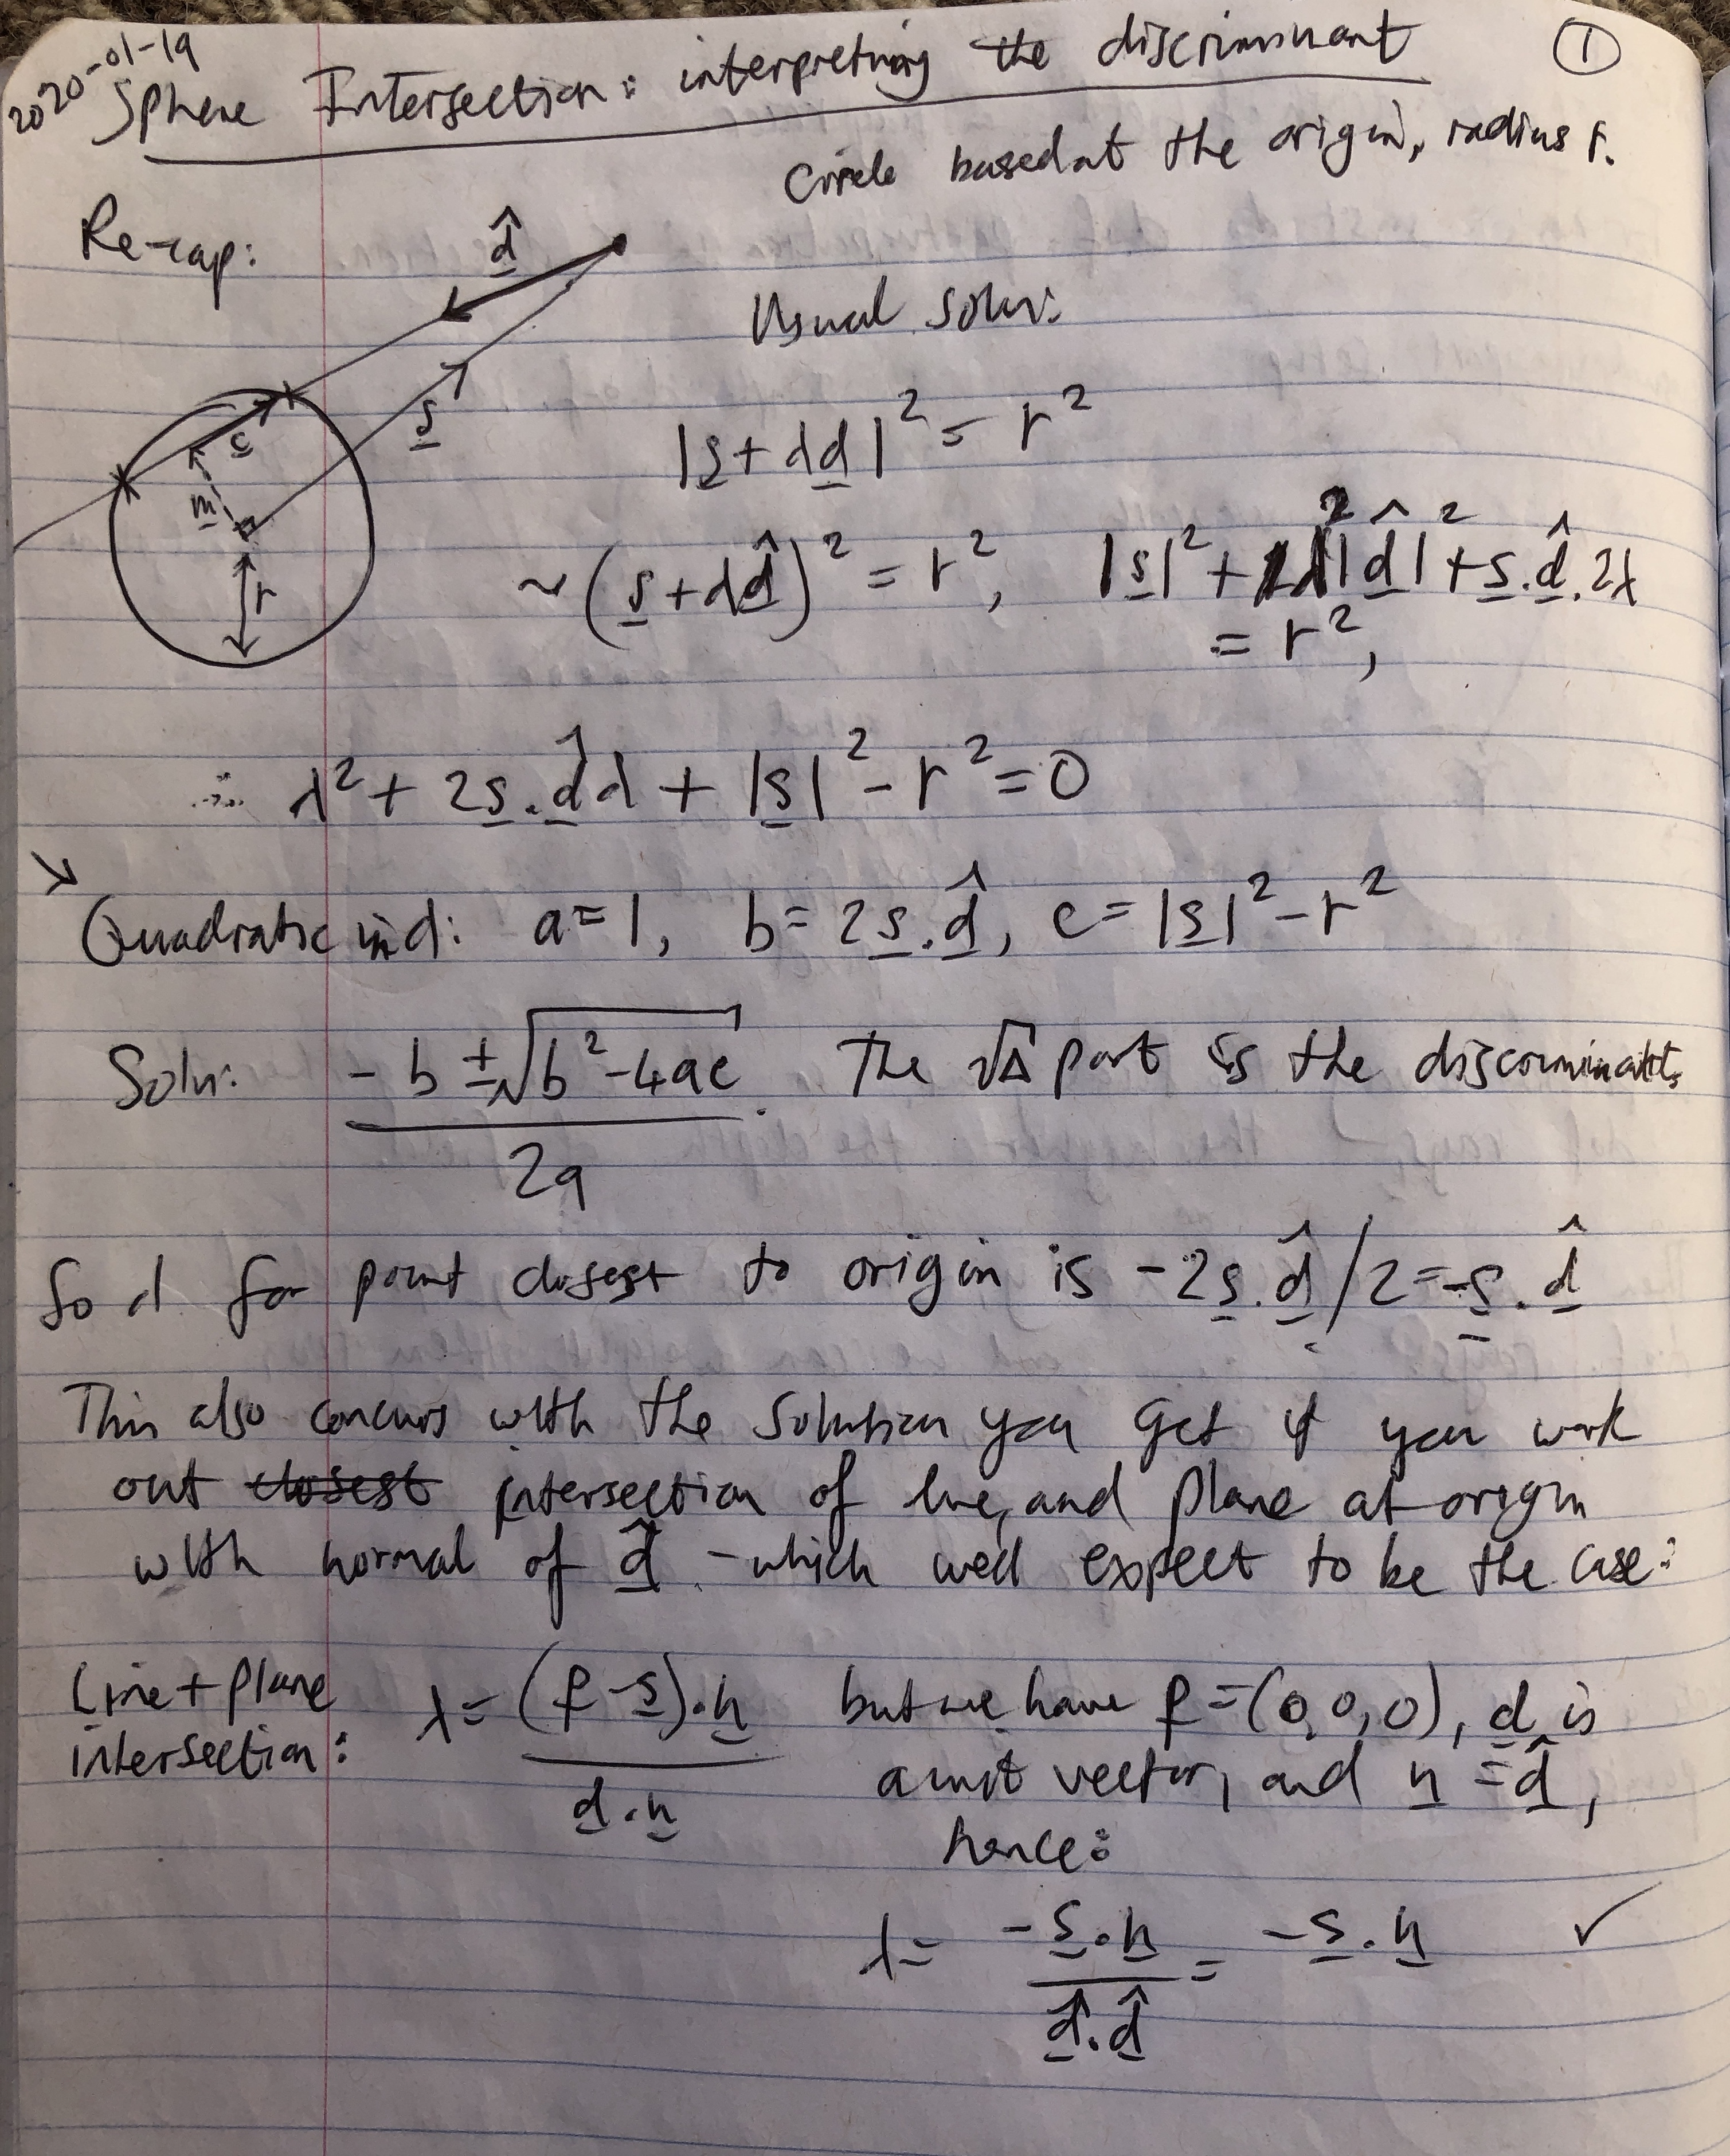 2020-01-19
Sphere Intersection: interpreting the discriminant ①
Circle based at the origin, radius r.
Re-cap:
d̂
Usual soln:
s
c
m
r
|s+λd|² = r²
~(s+λd̂)² = r², |s|²+λ²|d̂|²+s.d̂.2λ
= r²,
∴ λ²+2s.d̂λ + |s|²-r²=0
↘
Quadratic in λ: a=1, b=2s.d̂, c=|s|²-r²
Soln: (-b ± √(b²-4ac)) / 2a. The √Δ part is the discriminant.
So λ for point closest to origin is -2s.d̂/2=-s.d̂
This also concurs with the solution you get if you work
out closest intersection of line, and plane at origin
with normal of d̂ - which we'd expect to be the case:
Line+plane
intersection: λ= ((p-s).n) / (d.n) but we have p=(0,0,0), d is
a unit vector, and n=d̂,
hence:
λ= (-s.n) / (d̂.d̂) = -s.n ✓